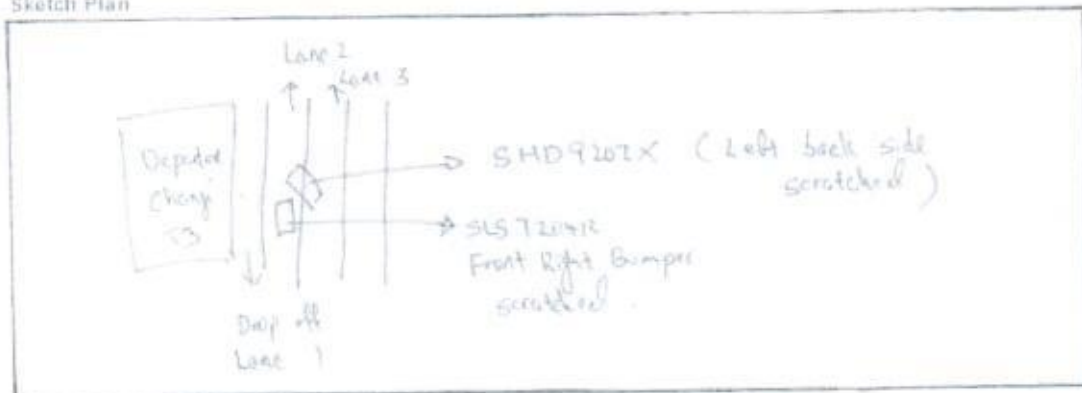 Sketch Plan
Lane 2
Lane 3
Changi
T3
SHD9202X (Left back side
scratched)
Front Right Bumper
scratched.
Drop off
Lane 1